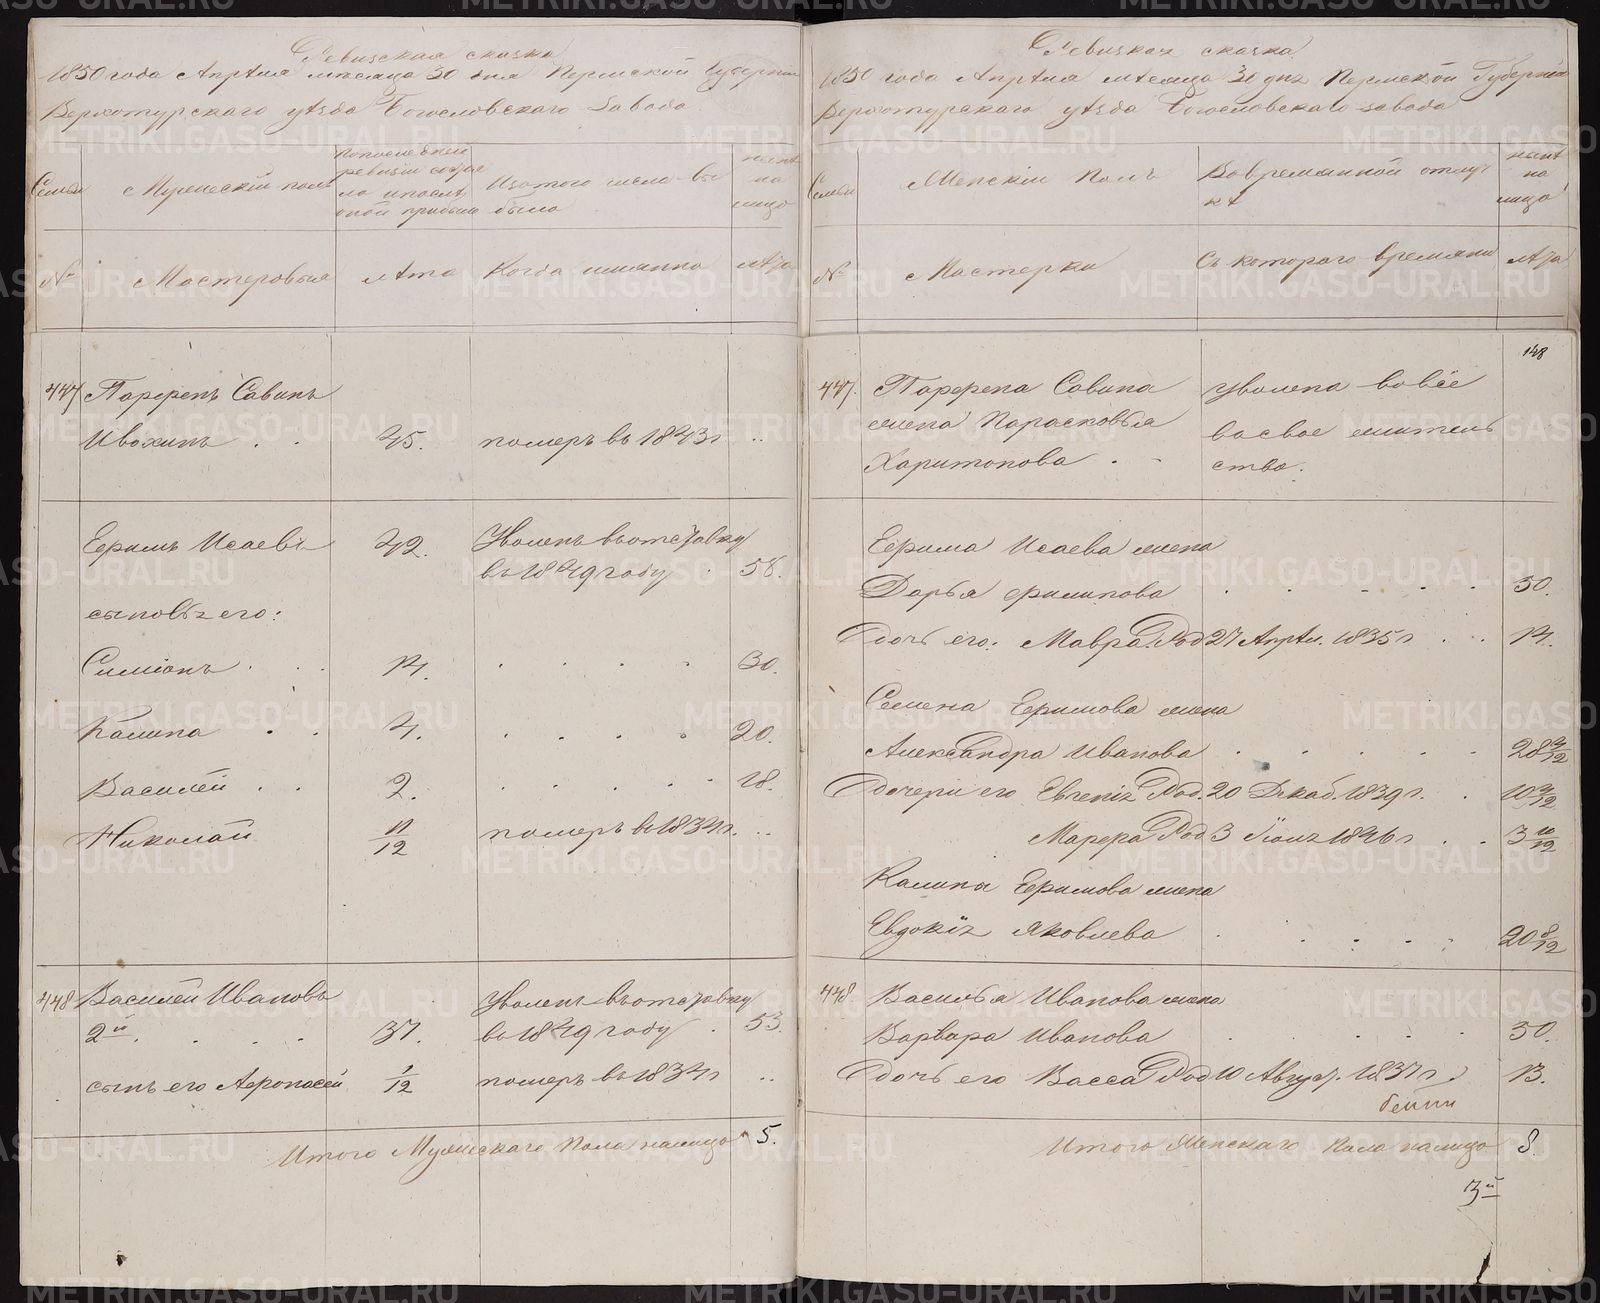 Ревизская сказка
1850 года Апреля месяца 30 дня Пермской Губернии
Верхотурскаго уезда Богословскаго завода
Семьи
Мужескій полъ
По последней ревизіи состояло и после оной прибыло
Изътого числа выбыло
ныне на лицо
№
Мастеровыя
лета
Когда имянно
лета
447 Парфенъ Савинъ
Ивохинъ . . 45. померъ въ 1843 г. ..
Ефимъ Исаевъ 42. Уволенъ въ отставку
въ 1849 году . 58.
сыновья его:
Симіонъ . . . 14. . . . . 30.
Калина . . 4. . . . . 20.
Василей . . 2. . . . . 18.
Николай 11/12 померъ въ 1834 г. ..
448 Василей Ивановъ Уволенъ въ отставку
2й. . . . . 37. въ 1849 году . 53.
сынъ его Афонасей 1/12 померъ въ 1834 г. ..
Итого Мужескаго Пола налицо 5.
Ревизская сказка
1850 года Апреля месяца 30 дня Пермской Губерніи
Верхотурскаго уезда Богословскаго завода
Семьи
Женскій Полъ
Во временной отлучке
ныне на лицо
№
Мастерки
Съ котораго времяни
лета
148
447. Парфена Савина Уволена вовсе
жена Парасковья во свое жительство.
Харитонова . .
Ефима Исаева жена
Дарья Филипова . . . . . . 50.
Дочь его: Мавра Род 27 Апрел. 1835 г . . . 14.
Семена Ефимова жена
Александра Иванова . . . . . . 28 3/12
Дочери его Евгенія Род. 20 Декаб. 1839 г. . 10 3/12
Марфа Род 3 Іюля 1846 г . . 3 10/12
Калины Ефимова жена
Евдокія Яковлева . . . . . 20 8/12
448 Василья Иванова жена
Варвара Иванова . . . . . 50.
Дочь его Васса Род 10 Август. 1837 г. 13.
Итого Женскаго Пола налицо 8.